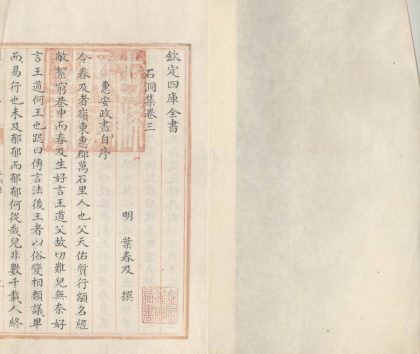 欽定四庫全書
石洞集卷三
明 葉春及 撰
惠安政書自序
今春及者嶺東惠郡萬石里人也父天佑質行顓名經
敝絮窮巷中而春及生好言王道父故切難兒無奈好
言王道何王也跽曰傳言法後王者以俗變相類議卑
而易行也未及郁郁而郁郁何從哉兒非數千載人終